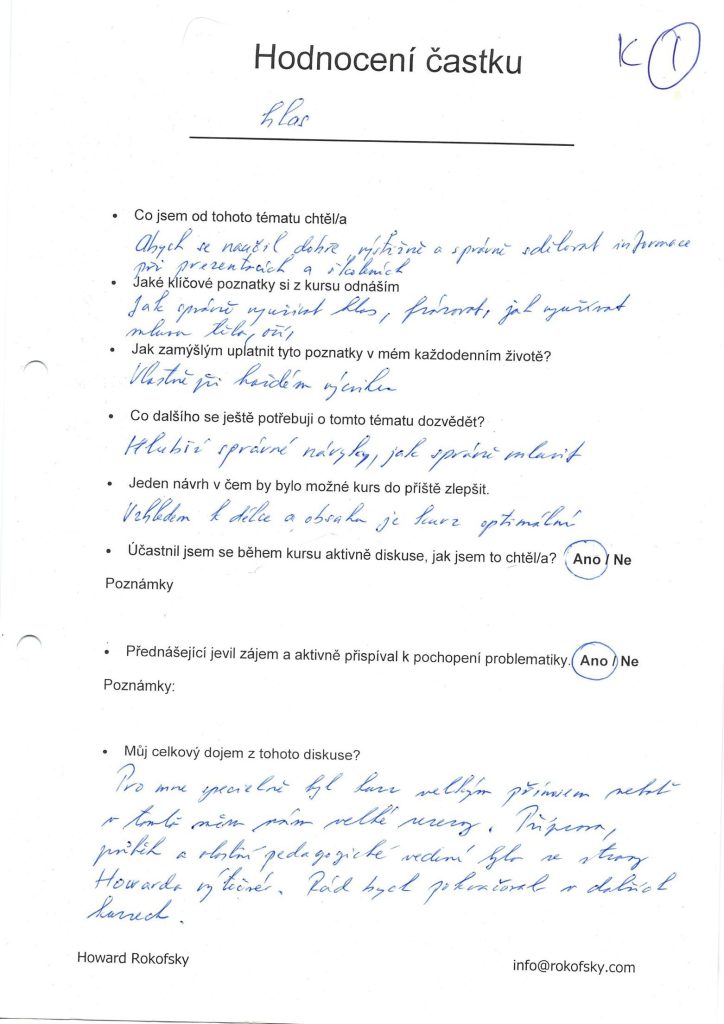 K 1
Hodnocení častku
hlas
• Co jsem od tohoto tématu chtěl/a
Abych se naučil dobře, výstižně a správně sdělovat informace
při prezentacích a školeních
• Jaké klíčové poznatky si z kursu odnáším
Jak správně využívat hlas, frázovat, jak využívat
mluvu těla, očí,
• Jak zamýšlým uplatnit tyto poznatky v mém každodenním životě?
Vlastně při každém výcviku
• Co dalšího se ještě potřebuji o tomto tématu dozvědět?
Hlubší správné návyky, jak správně mluvit
• Jeden návrh v čem by bylo možné kurs do příště zlepšit.
Vzhledem k délce a obsahu je kurz optimální
• Účastnil jsem se během kursu aktivně diskuse, jak jsem to chtěl/a? Ano / Ne
Poznámky
• Přednášející jevil zájem a aktivně přispíval k pochopení problematiky. Ano / Ne
Poznámky:
• Můj celkový dojem z tohoto diskuse?
Pro mne specielně byl kurz velkým přínosem neboť
v tomto směru mám velké rezervy. Příprava,
průběh a vlastní pedagogické vedení bylo ze strany
Howarda výtečné. Rád bych pokračoval v dalších
kurzech.
Howard Rokofsky
info@rokofsky.com